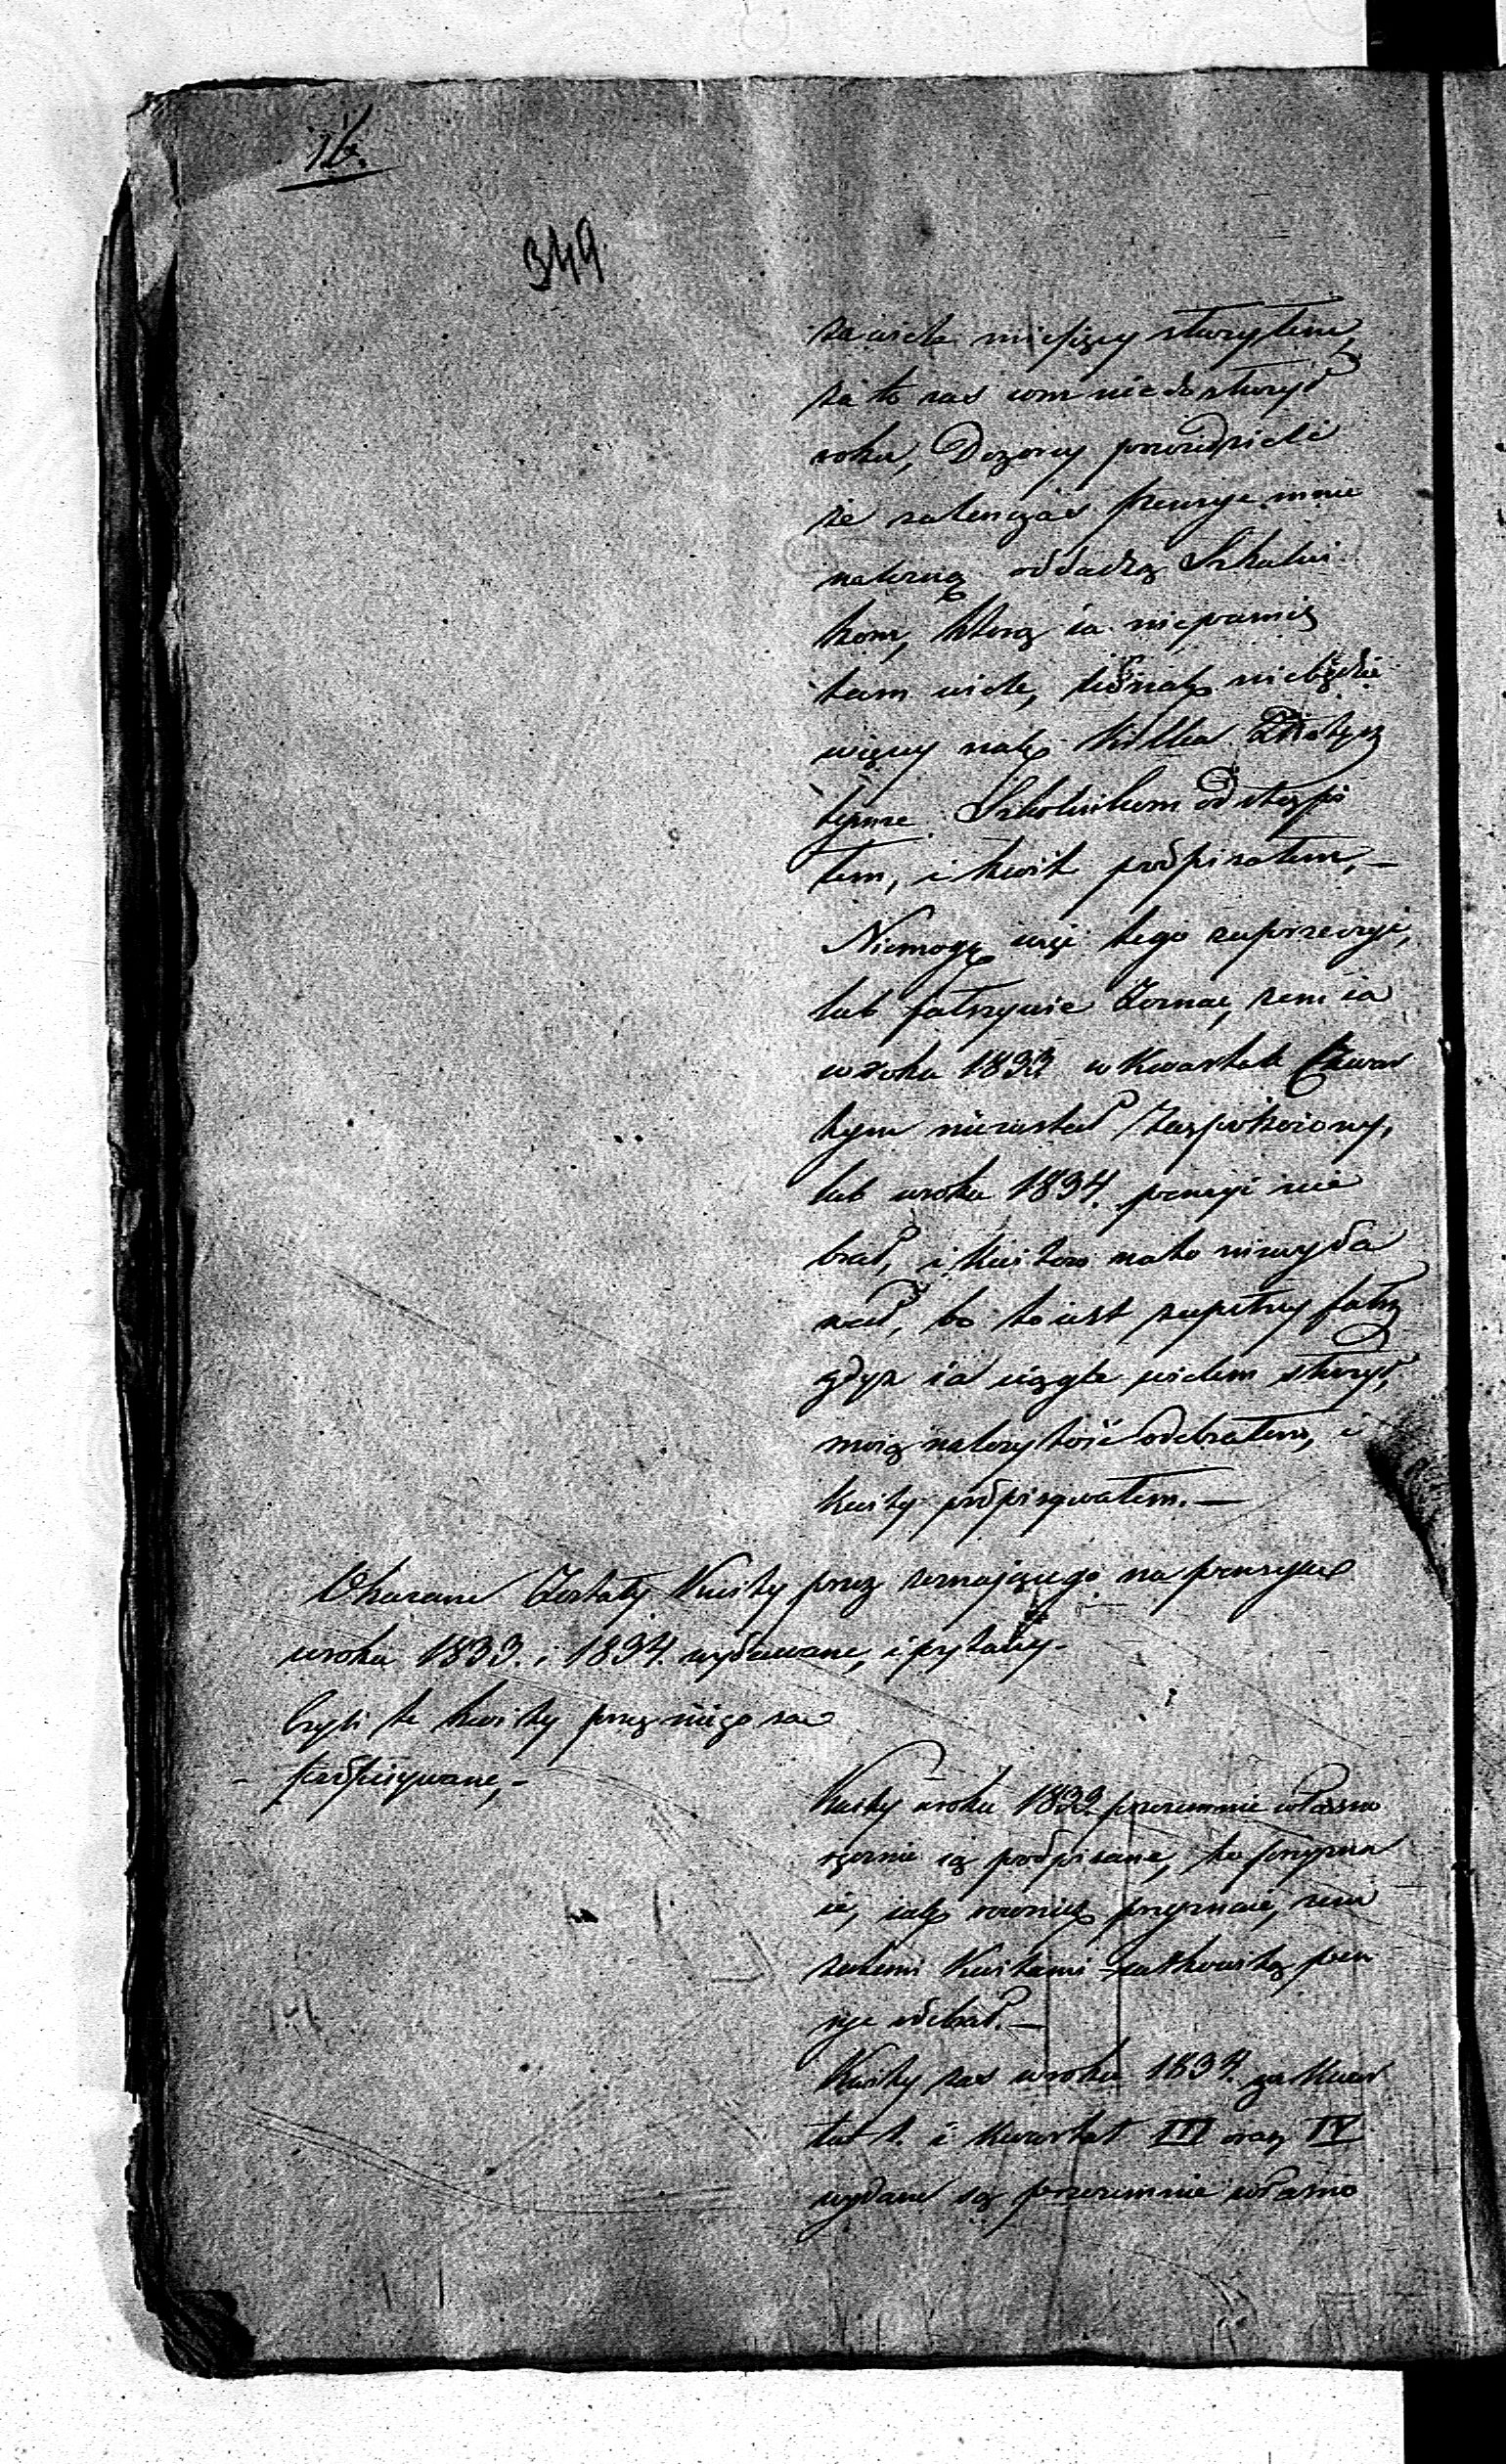 16.
349
za wiele miesięcy służyłem,
za to zas com niedosłużył
roku, Dozorcy powiedzieli
że natenczas pensye mnie
należną oddadzą Szkolni
kom, którą ia niepamię
tam wiele, iednak niebędzie
więcy nak kilka Złotych
tymże Szkolnikom odstąpi
łem, i kwit podpisałem, —
Niemogę więc tego zaprzeczyć,
lub fałszywie zeznać, zem ia
wroku 1833 w Kwartale Czwar
tym niezostał zaspokoiony,
lub wroku 1834. pensyi nie
brał, i kwitow nato niewyda
wał, bo to iest zupełny fałsz
gdyż ia ciągle wielem służył,
moią należytość odebrałem, i
kwity podpisywałem. —
Okazane Zostały Kwity przez zeznającego na pensye
wroku 1833. i 1834. wydawane, i pytany
czyli te kwity przez niego są
podpisywane, -
Kwity wroku 1833 przezemnie własno
ręcznie są podpisane, to przyzna
ie, iak rownież przyznaie, zem
zatemi Kwitami całkowitą pen
sye odebrał. —
Kwity zas wroku 1834. za Kwar
tał I. i Kwartał III oraz IV
wydane są przezemnie własno